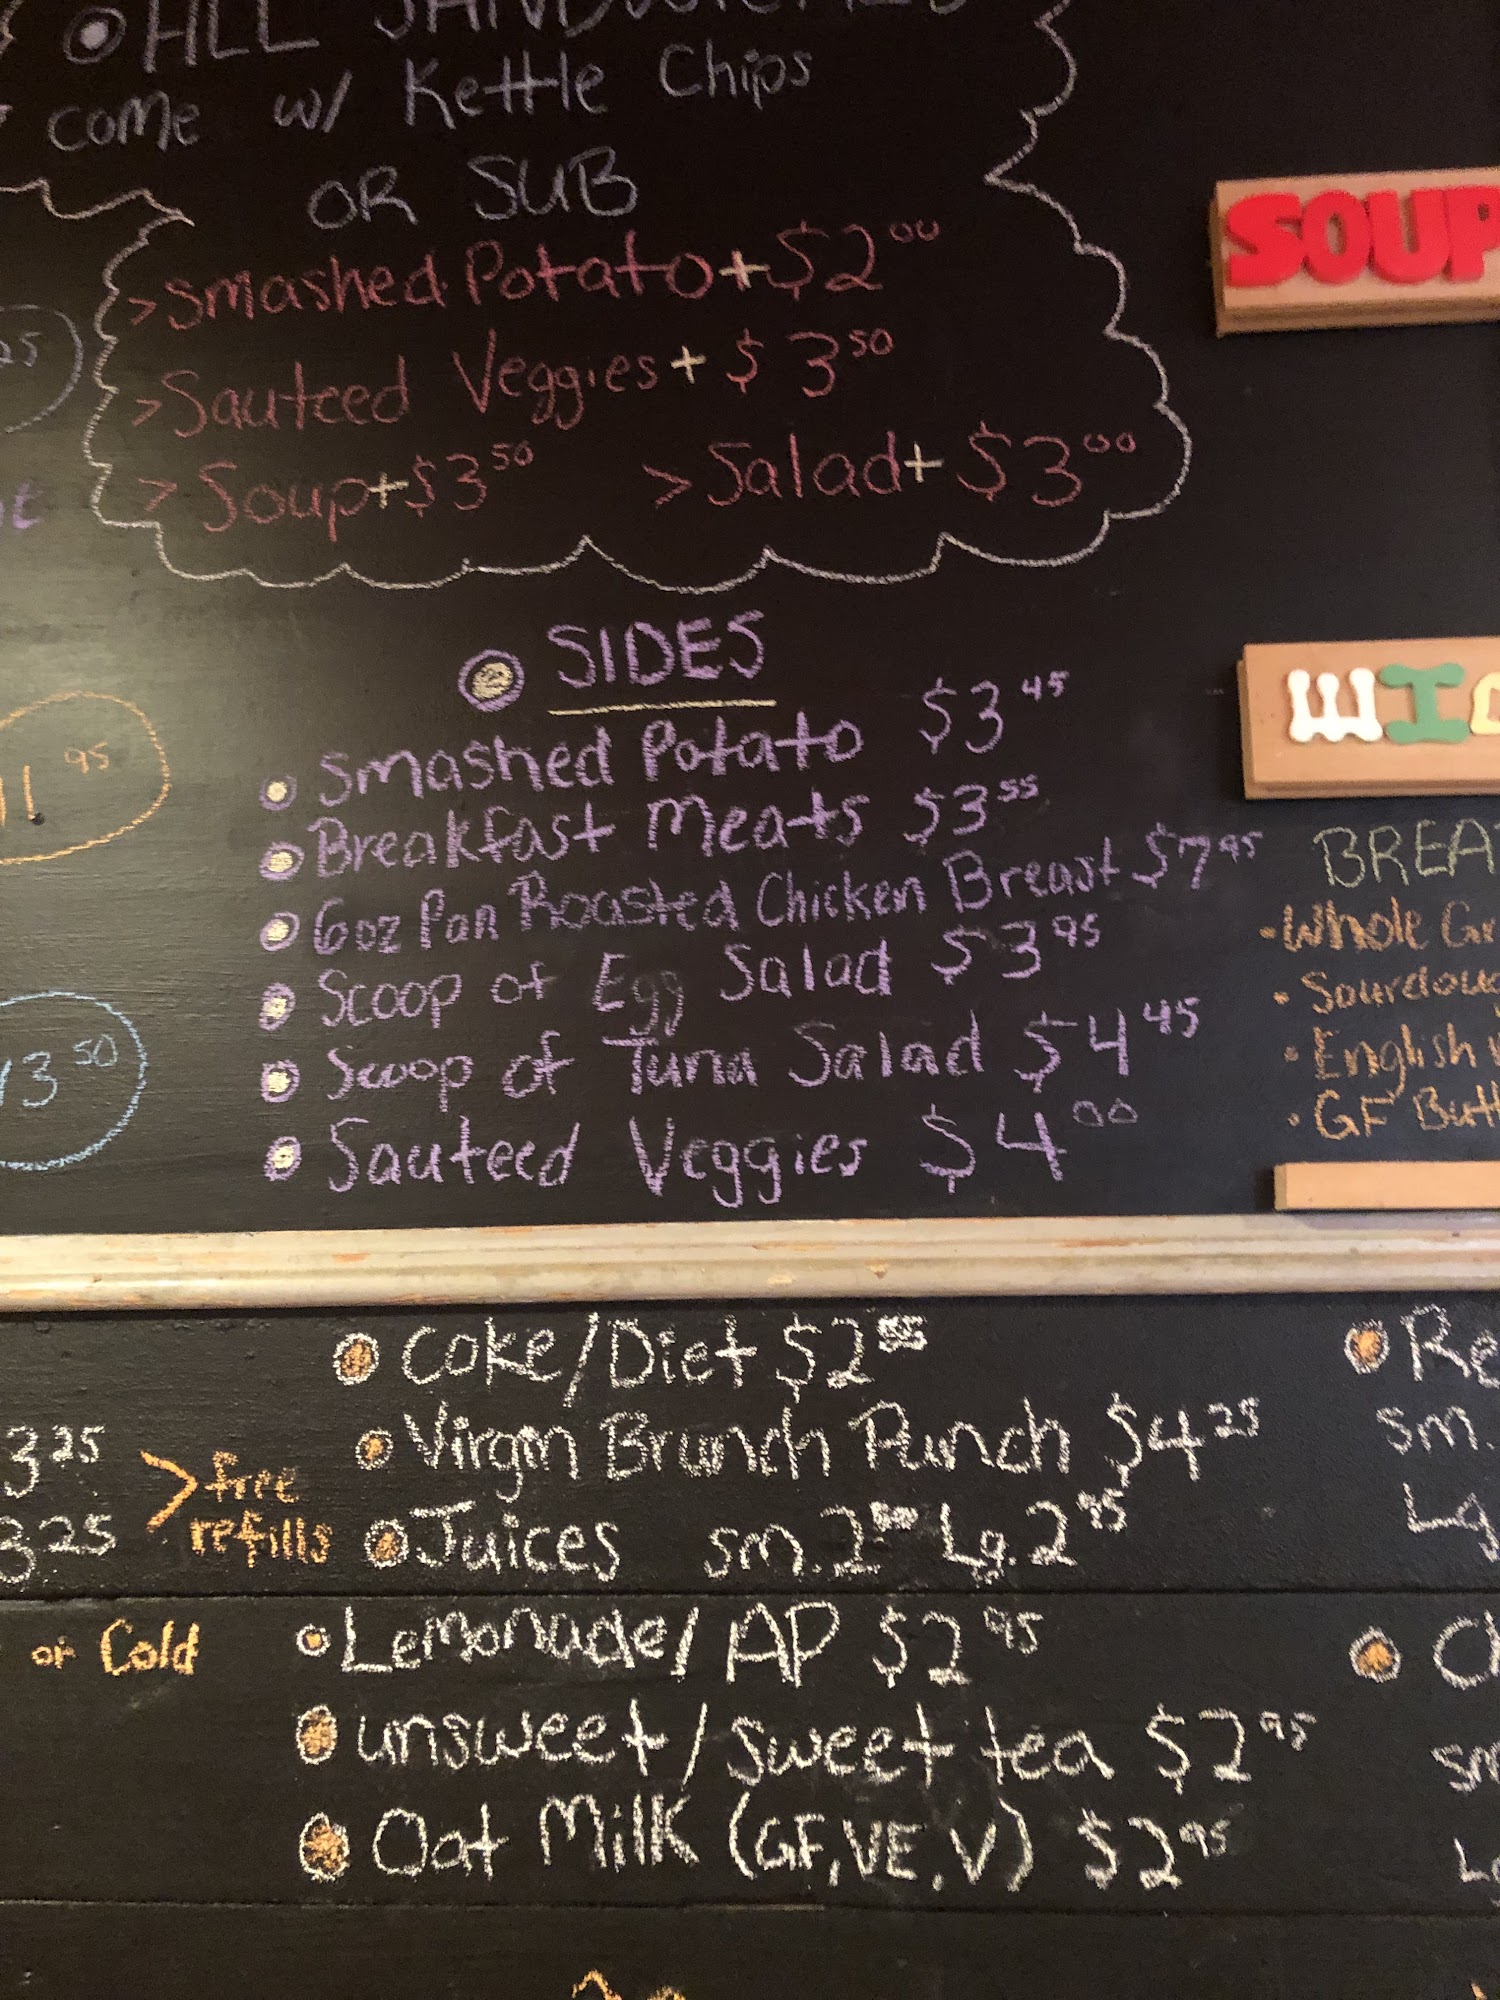 ALL SANDWICHES
come w/ Kettle Chips
OR SUB
>Smashed Potato+$2.00
>Sauteed Veggies+$3.50
>Soup+$3.50 >Salad+$3.00
SIDES
Smashed Potato $3.45
Breakfast Meats $3.55
6oz Pan Roasted Chicken Breast $7.95
Scoop of Egg Salad $3.95
Scoop of Tuna Salad $4.45
Sauteed Veggies $4.00
11.95
13.50
SOUP
BREA
•Whole Gr
•Sourdoug
•English
•GF Butt
Coke/Diet $2
Virgin Brunch Punch $4.25
3.25
3.25
>free
refills
Juices sm. 2 Lg. 2.95
or Cold
Lemonade/AP $2.95
unsweet/sweet tea $2.95
Oat Milk (GF,VE,V) $2.95
Re
sm.
Lg.
Ch
sm